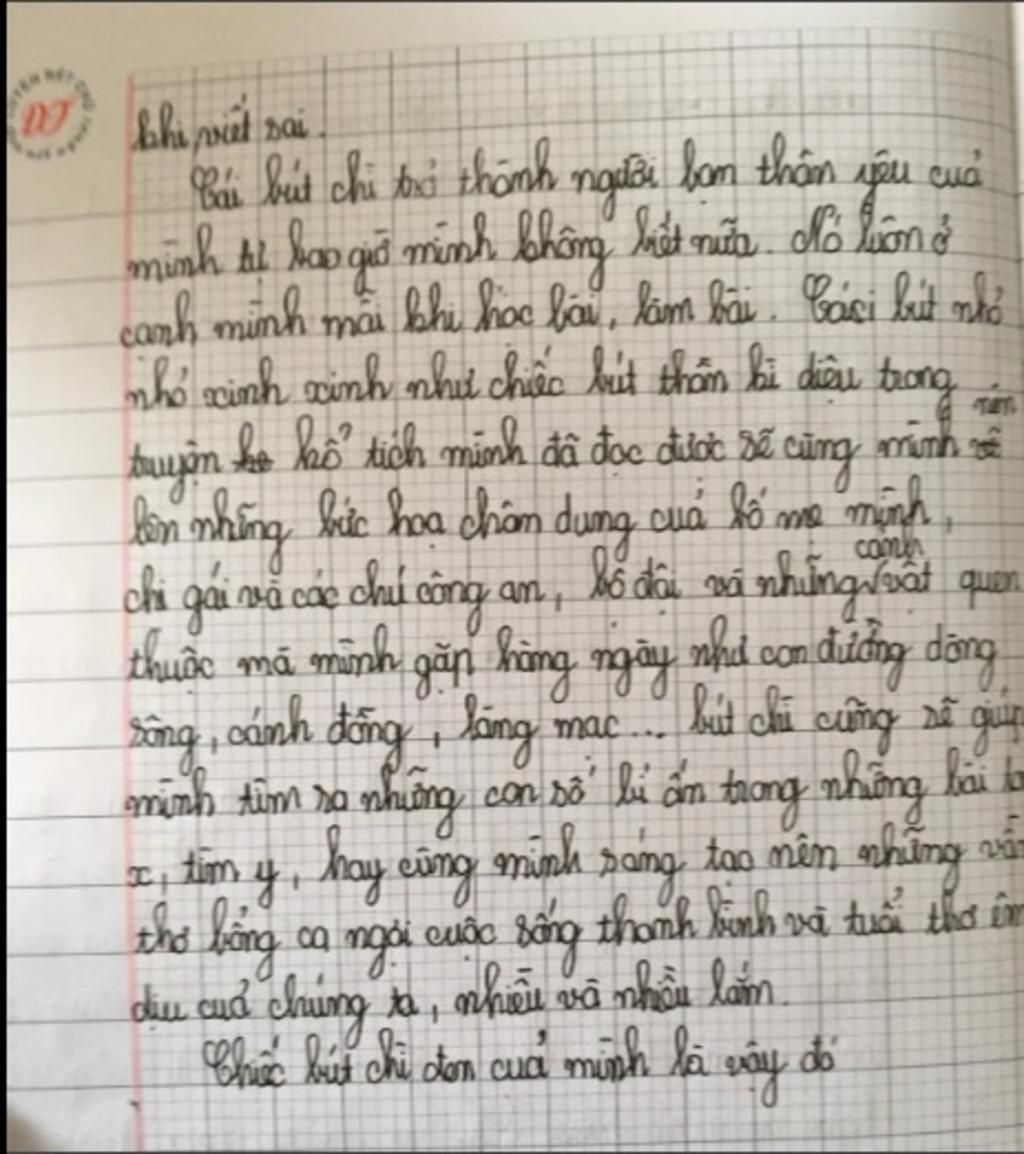 khi viết sai.
Cái bút chì trở thành người bạn thân yêu của
mình từ bao giờ mình không biết nữa. Nó luôn ở
cạnh mình mỗi khi học bài, làm bài. Cái bút nhỏ
nhỏ xinh xinh như chiếc bút thần kì diệu trong
truyện kổ tích mình đã đọc được sẽ cùng mình nên
lên những bức hoạ chân dung của bố mẹ mình,
chị gái và các chú công an, bộ đội và những cảnh vật quen
thuộc mà mình gặp hàng ngày như con đường dòng
sông, cánh đồng, làng mạc... bút chì cũng sẽ giúp
mình tìm ra những con số bí ẩn trong những bài
x, tìm y, hay cùng mình sáng tạo nên những
thơ bổng ca ngợi cuộc sống thanh bình và tuổi thơ êm
dịu của chúng ta, nhiều và nhiều lắm.
Chiếc bút chì đen của mình là vậy đó